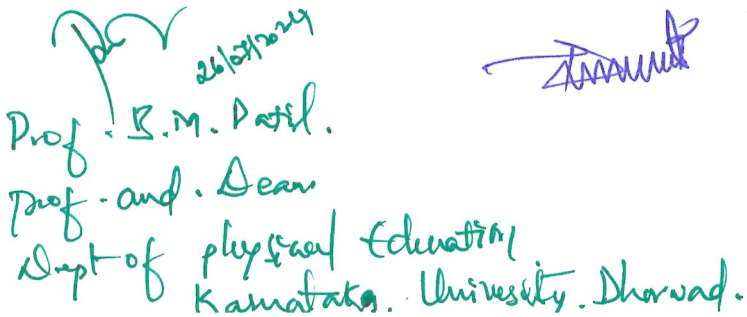 26/07/2024
Prof. B. M. Patil.
prof. and. Dean
Dept of physical Education
Karnataka. University. Dharwad.